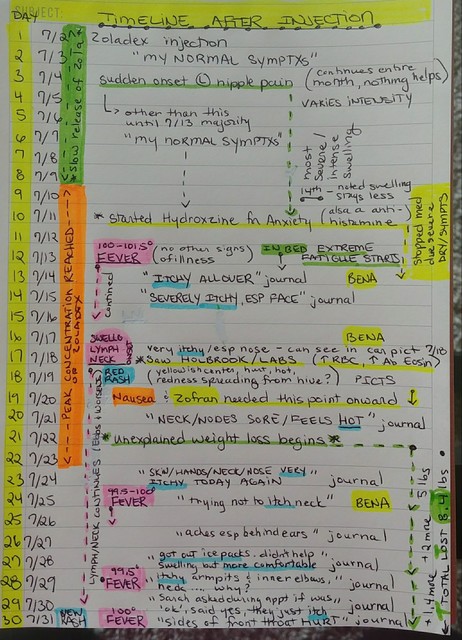 SUBJECT:
DAY TIMELINE AFTER INJECTION
1 7/2 Zoladex injection
2 7/3 "MY NORMAL SYMPTXS"
3 7/4 sudden onset Ⓛ nipple pain (continues entire month, nothing helps)
4 7/5 VARIES INTENSITY
5 7/6 ↳ other than this
until 7/13 majority
6 7/7 "MY NORMAL SYMPTXS"
7 7/8
8 7/9
* slow release of Zola *
most severe/intense swelling
14th - noted swelling sizes less
9 7/10
10 7/11 * Started Hydroxzine for Anxiety (also a anti-histamine)
Stopped med due severe DRY/SYMPTS
11 7/12
12 7/13 100-101.5° FEVER (no other signs of illness) IN BED EXTREME FATIGUE STARTS
13 7/14 "ITCHY ALLOVER" journal BENA
14 7/15 "SEVERELY ITCHY, ESP FACE" journal
15 7/16
continued
PEAK CONCENTRATION REACHED OF ZOLADEX
16 7/17 SWELLO LYMPH NECK ONSET BENA
very itchy/esp nose - can see in car pict 7/18
17 7/18 * Saw HOLBROOK/LABS (↑RBC, ↑Ab Eosin)
18 7/19 RED RASH yellowish center, hurt, hot, redness spreading from hive?) PICTS
19 7/20 Nausea & Zofran needed this point onward
20 7/21 "NECK/NODES SORE/FEELS HOT" journal
21 7/22 * unexplained weight loss begins *
22 7/23
23 7/24 "SKN/HANDS/NECK/NOSE VERY ITCHY TODAY AGAIN" journal
24 7/25 99.5-100° FEVER "trying not to itch neck" BENA
25 7/26
26 7/27 "aches esp behind ears" journal
27 7/28 "got out ice packs. didn't help swelling but more comfortable"
28 7/29 99.5° FEVER "itchy armpits & inner elbows, .... why?" journal
29 7/30 "Sarah asked during appt if was 'ok', said yes, they just itch" journal
30 7/31 NEW RASH 100° FEVER "sides of front throat HURT" journal
LYMPH/NECK CONTINUES (Ebbs & Worsens)
5 lbs
+ 2 more
+ 1.4 more
TOTAL LOST 8.4 lbs